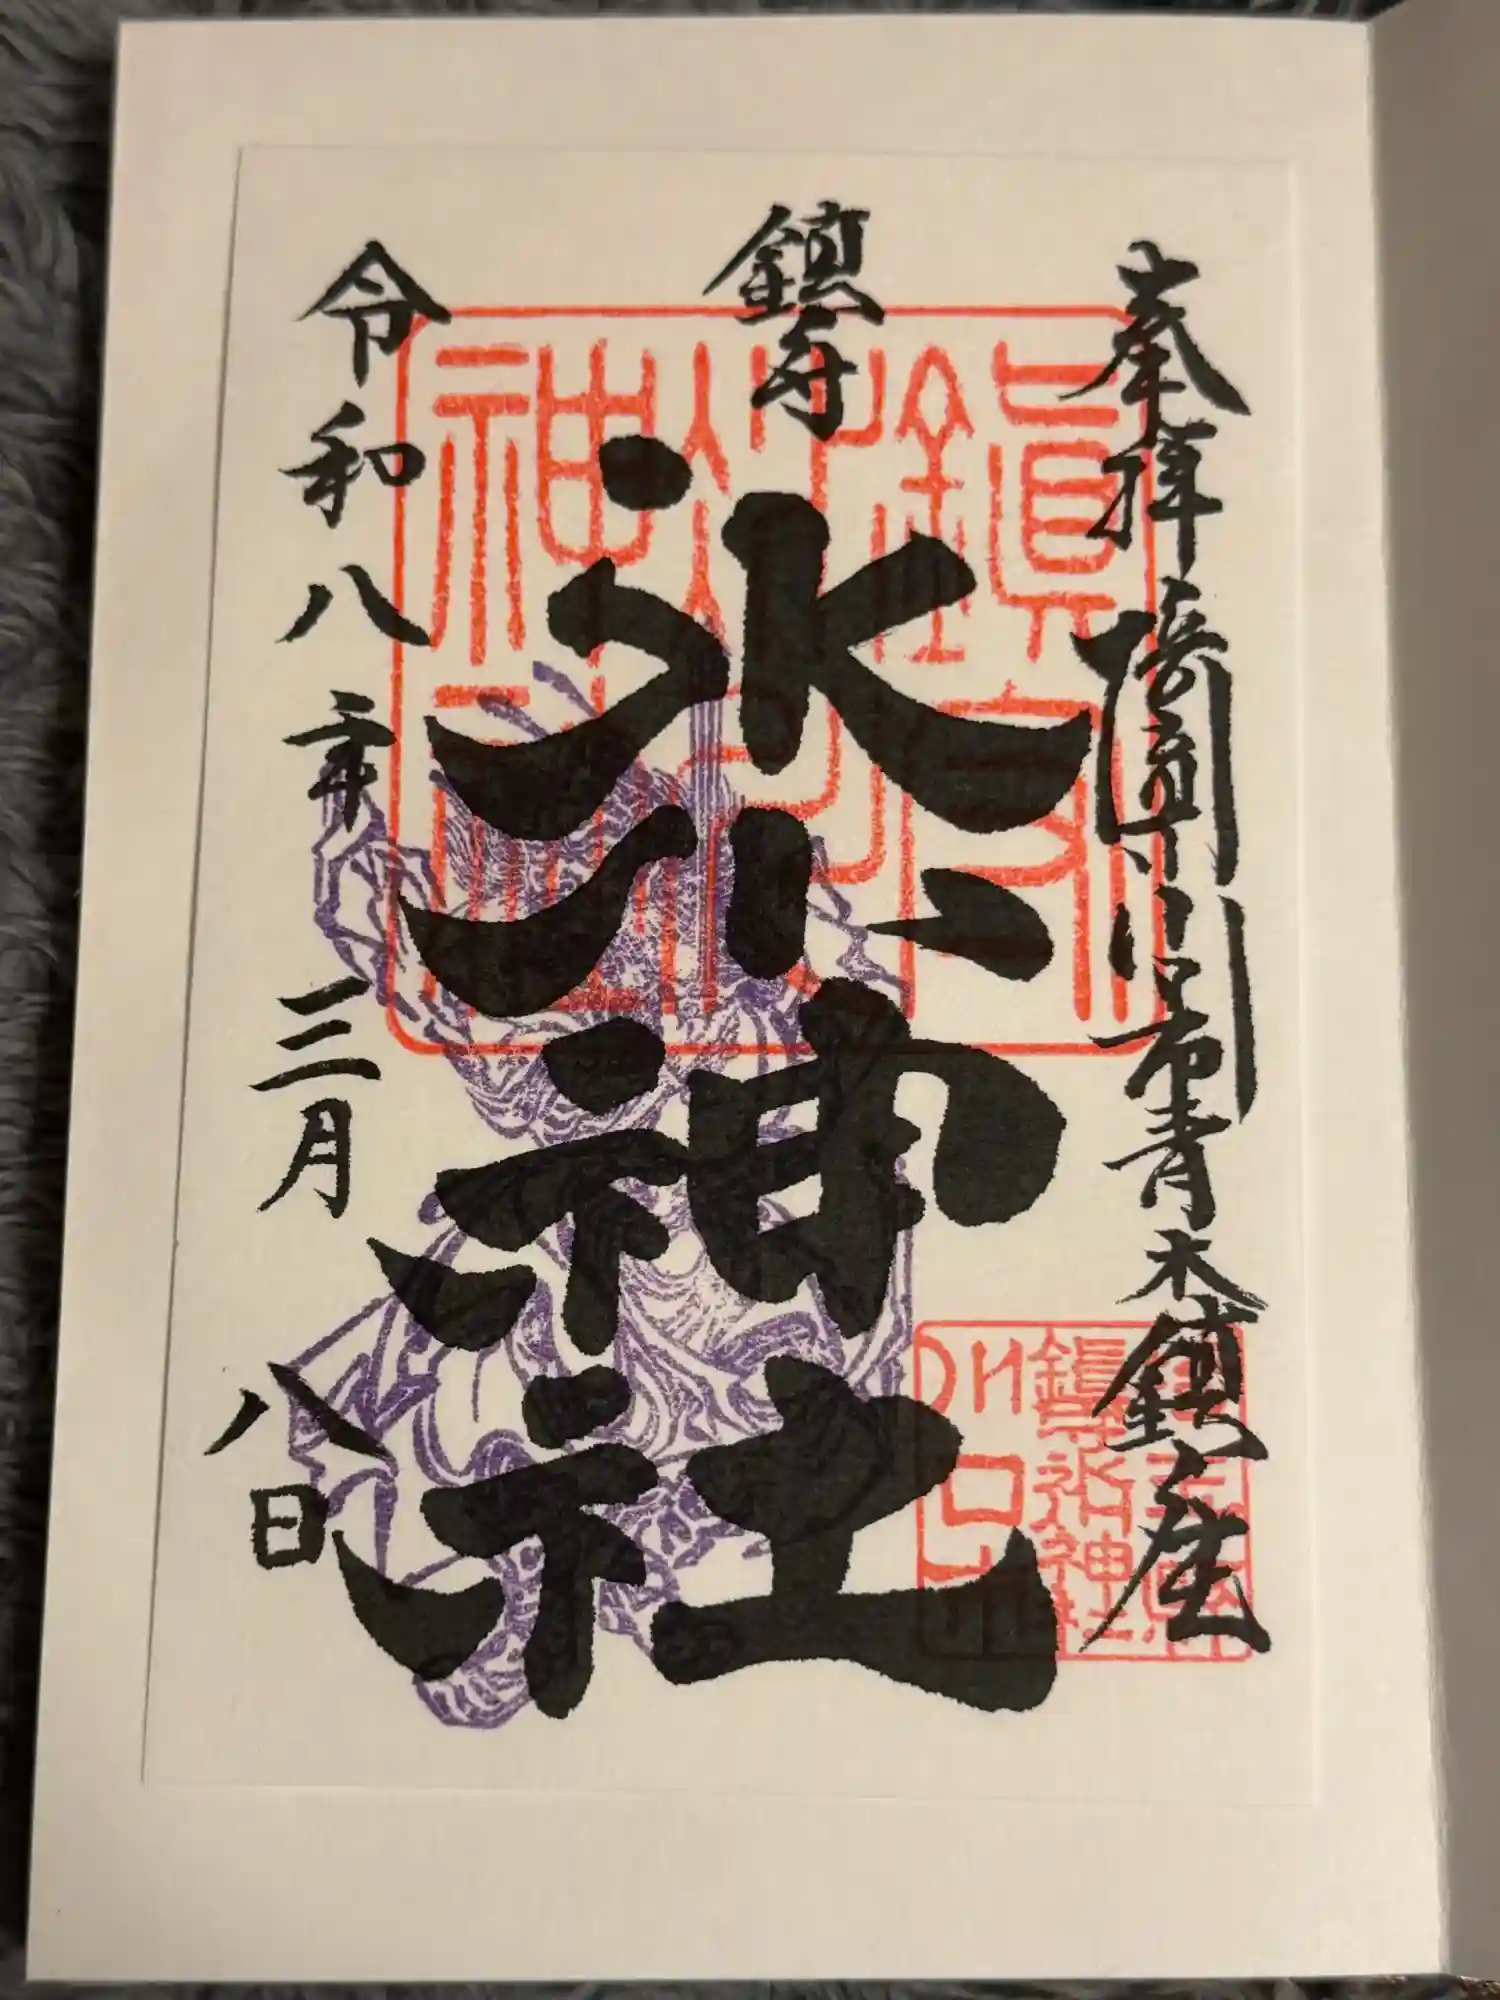 奉拝 川口市青木鎮座
鎮守
氷川神社
令和八年 三月 八日
鎮守
氷川
神社
鎮守氷川神社
川口市